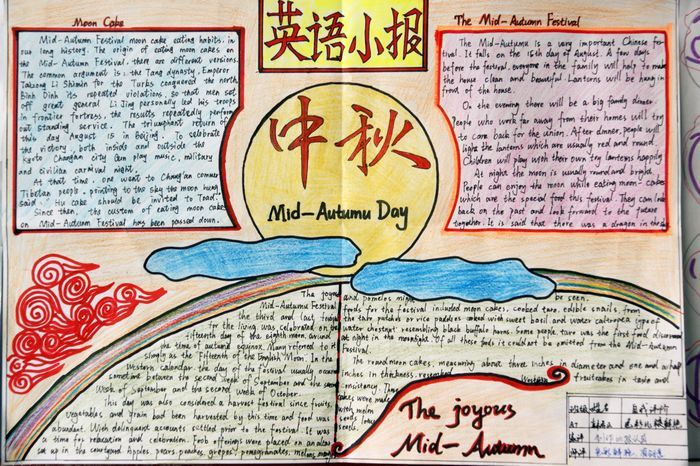 英语小报
Moon Cake
Mid-Autumn Festival moon cake eating habits, in
our long history. The origin of eating moon cakes on
the Mid-Autumn Festival, there are different versions.
The common argument is: the Tang dynasty, Emperor
Taizong Li Shimin for the Turks conquered the north
off great general Li Jing personally led his troops
in frontier fortress, the results repeatedly perform
out standing service. The triumphant return of
this day August 15 in Beijing. To celebrate
the victory, both inside and outside the
Kyoto Changan city Gan play music, military
and civilian carnival night.
At that time, one went to Chang'an commer
Tibetan people, pointing to the sky the moon hung,
said: Hu cake should be invited to Toad.
Since then, the custom of eating moon cake
on Mid-Autumn Festival has been passed down.
The Mid-Autumn Festival
The Mid-Autumu is a very important Chinese fes-
tival. It falls on the 15th day of August. A few days
before the festival, everyone in the family will help to make
the house clean and beautiful. Lanterns will be hung in
front of the house.
On the evening there will be a big family dinner.
People who work far away from their homes will try
to come back for the union. After dinner, people will
light the lanterns which are usually red and round.
Children will play with their own toy lanterns happily.
At night the moon is usually round and bright.
People can enjoy the moon while eating moon-cakes
which are the special food this festival. They can look
back on the past and look forward to the future
together. It is said that there was a dragon in the
中秋
Mid-Autumu Day
The joyous
Mid-Autumn Festival
the third and last
for the living was celebrated on the
fifteenth day of the eighth moon, around
the time of autumn equinox. Many referred to it
simply as the "Fifteenth of the Eighth Moon". In the
Western calendar, the day of the festival usually occurred
sometime between the second week of September and the
Week of September and the second week of October.
This day was also considered a harvest festival since fruits,
vegetables and grain had been harvested by this time and food was
abundant. With delinquent accounts settled prior to the festival. It was
a time for relaxation and celebration. Food offerings were placed on an altar
set up in the courtyard. Apples, pears, peaches, grapes, pomegranates, melons,
and pomelos might be seen.
foods for the festival included moon cakes, cooked taro, edible snails from
the taro patches or rice paddies cooked with sweet basil and water caltrope, type of
water chestnut resembling black buffalo horns. Some people
at night in the moonlight. Of all these foods it could not be omitted from the Mid-Autumn
Festival.
The round moon cakes, measuring about three inches in diameter and one and a half
inches in thickness, resembled Western fruitcakes in taste and
consistency. These
cakes were made
with melon
seeds, lotus
seeds,
The joyous
Mid-Autumn